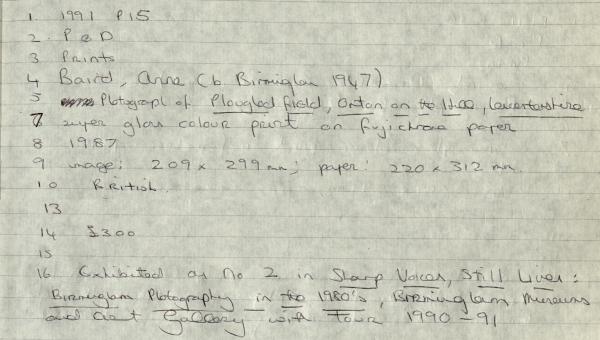 1 1991 P15
2. P&D
3 Prints
4 Baird, Anne (b. Birmingham 1947)
5 Photograph of Ploughed field, Orton on the Hill, Leicestershire
7 super gloss colour print on fujichrome paper
8 1987
9 image: 209 x 299 mm; paper: 220 x 312 mm.
10 British.
13
14 £300
15
16 Exhibited as No 2 in Sharp Voices, Still Lives:
Birmingham Photography in the 1980's, Birmingham Museums
and Art Gallery with Tour 1990-91